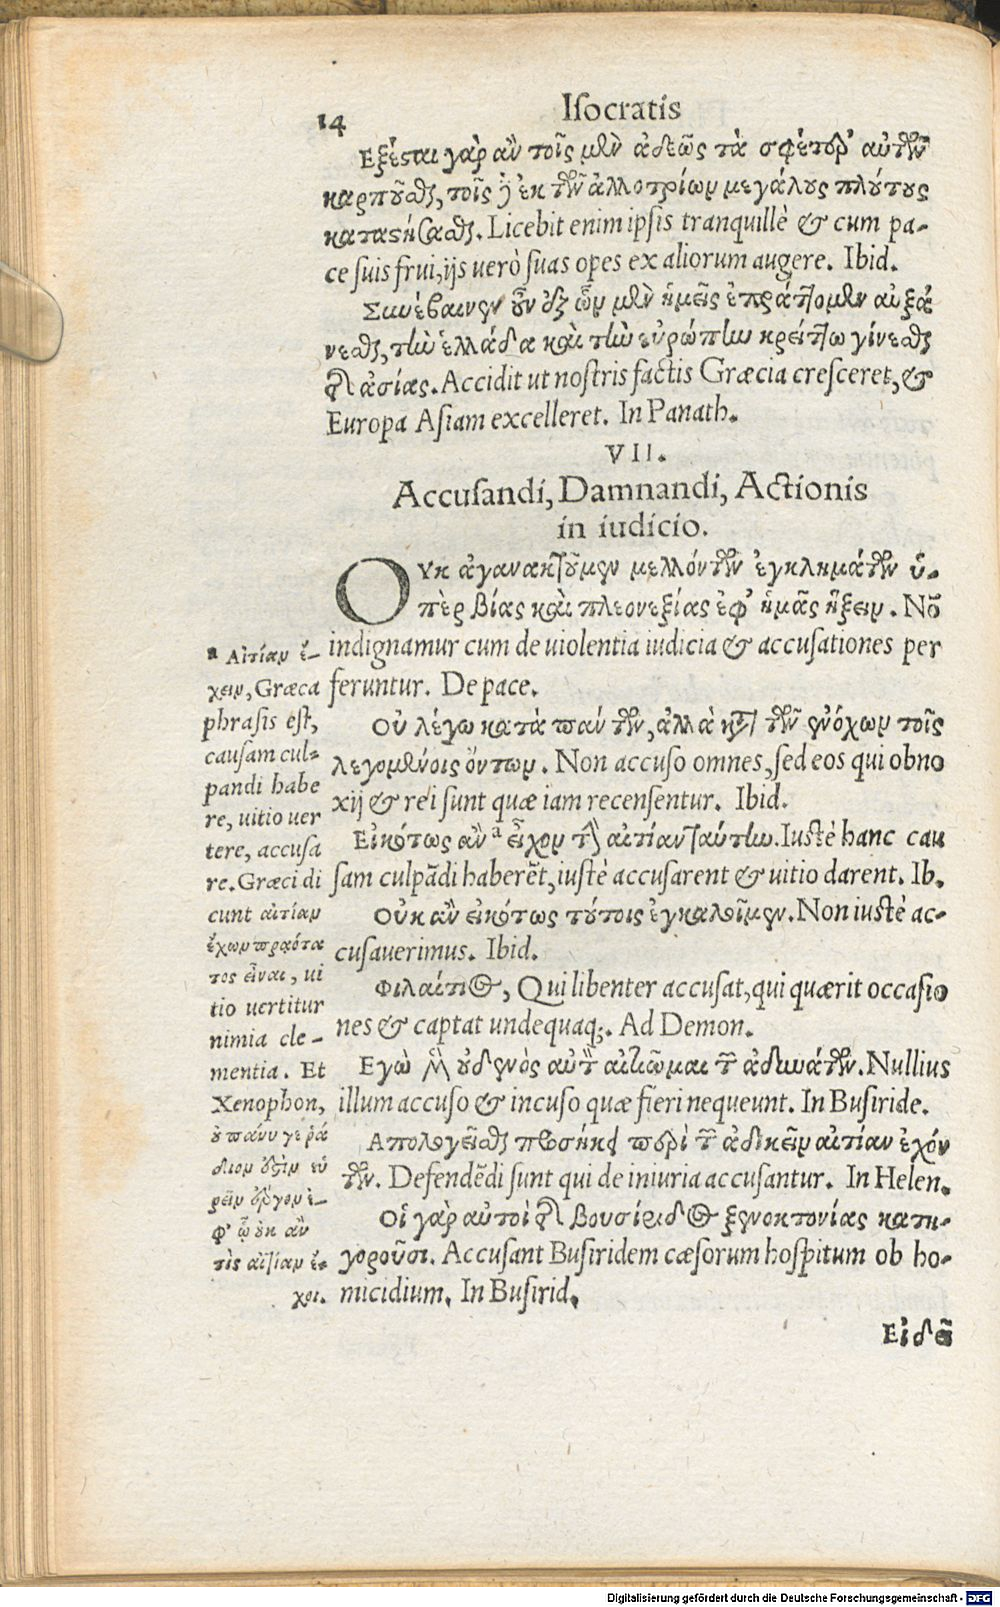 14
Isocratis
Εξέσται γὰρ ἂν τοῖς μὲν ἀδεῶς τὰ σφέτερ' αὐτῶν
καρποῦσθαι, τοῖς δ' ἐκ τῶν ἀλλοτρίων μεγάλους πλούτους
κατακτήσασθαι. Licebit enim ipsis tranquillè & cum pa-
ce suis frui, ijs verò suas opes ex aliorum augere. Ibid.
Συνέβαινεν οὖν ἐξ ὧν μὲν ἡμεῖς ἐπράττομεν αὐξά
νεσθαι, τὴν ἑλλάδα καὶ τὴν εὐρώπην κρείττω γίνεσθαι
τῆς ἀσίας. Accidit ut nostris factis Græcia cresceret, &
Europa Asiam excelleret. In Panath.
VII.
Accusandi, Damnandi, Actionis
in iudicio.
Ουκ ἀγανακτοῦμεν μελλόντων ἐγκλημάτων ὑ-
πὲρ βίας καὶ πλεονεξίας ἐφ' ἡμᾶς ἥξειν. Nō
indignamur cum de uiolentia iudicia & accusationes per
feruntur. De pace.
Οὐ λέγω κατὰ πάντων, ἀλλὰ κατὰ τῶν ἐνόχων τοῖς
λεγομένοις ὄντων. Non accuso omnes, sed eos qui obno
xij & rei sunt quæ iam recensentur. Ibid.
Εἰκότως ἂν a εἶχον τὴν αἰτίαν ταύτην. Iustè hanc cau
sam culpādi haberēt, iustè accusarent & uitio darent. Ib.
Οὐκ ἂν εἰκότως τούτοις ἐγκαλοῖμεν. Non iustè ac-
cusauerimus. Ibid.
Φιλαίτιος, Qui libenter accusat, qui quærit occasio
nes & captat undequaq;. Ad Demon.
Εγὼ δ' οὐδενὸς αὐτὸν αἰτιῶμαι τῶν ἀδυνάτων. Nullius
illum accuso & incuso quæ fieri nequeunt. In Busiride.
Απολογεῖσθαι προσήκει περὶ τῶν ἀδικεῖν αἰτίαν ἐχόν
των. Defendēdi sunt qui de iniuria accusantur. In Helen.
Οἱ γὰρ αὐτοὶ τῆς βουσίριδος ξενοκτονίας κατη-
γοροῦσι. Accusant Busiridem cæsorum hospitum ob ho-
micidium. In Busirid.
Εἰ δὲ
a Αἰτίαν ἔ-
χειν, Græca
phrasis est,
causam cul-
pandi habe
re, uitio uer
tere, accusa
re. Græci di
cunt αἰτίαν
ἔχων πραότα
τος εἶναι, ui
tio uertitur
nimia cle-
mentia. Et
Xenophon,
οὐ πάνυ γε ῥά
διον ἐστὶν εὑ
ρεῖν ἔργον ἐ-
φ' ᾧ οὐκ ἄν
τις αἰτίαν ἔ-
χοι.
Digitalisierung gefördert durch die Deutsche Forschungsgemeinschaft - DFG